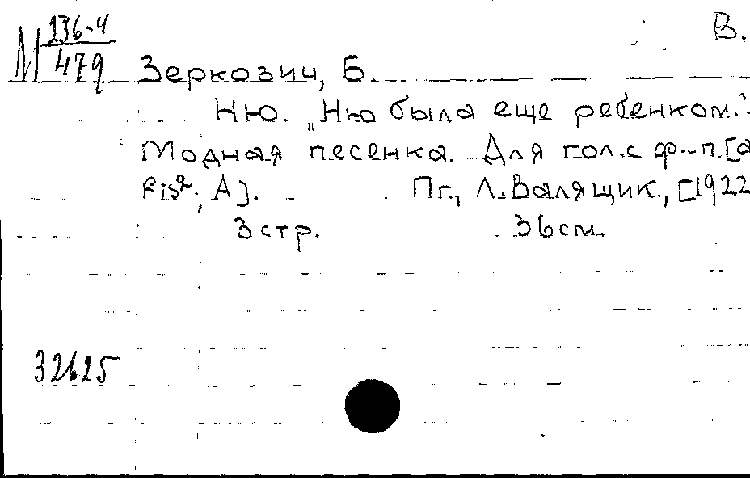 В.
М 136-4
479
Зеркович, Б.
Ню. „Ню была еще ребенком."
Модная песенка. Для гол. с ф.-п. [а
fis²; A]. Пг., Л. Валящик, [1922
3 стр. 36 см.
32625